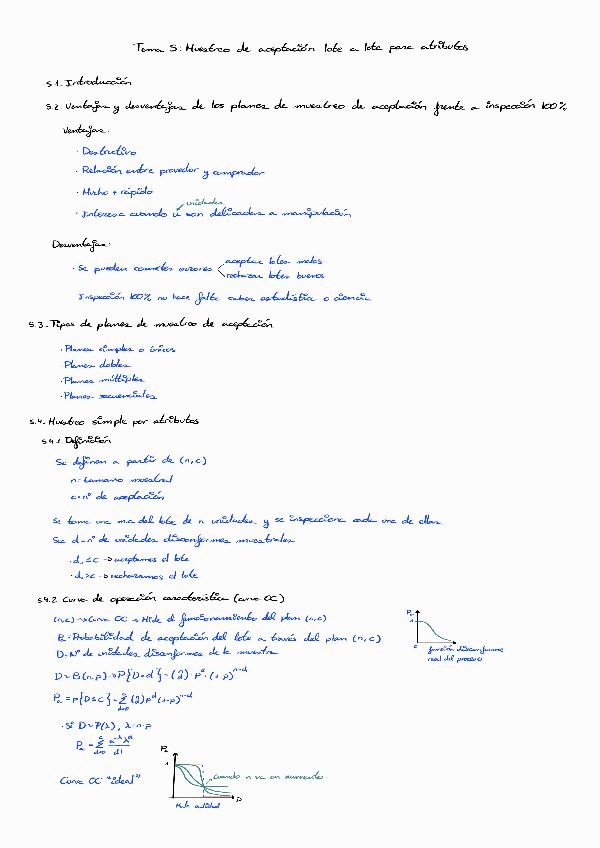 Tema 5: Muestreo de aceptación lote a lote para atributos
5.1. Introducción
5.2. Ventajas y desventajas de los planes de muestreo de aceptación frente a inspección 100%
Ventajas:
· Destructivo
· Relación entre provedor y comprador
· Mucho + rápido
unidades
· Interesa cuando u son delicadas a manipulación
Desventajas:
· Se pueden cometer errores
aceptar lotes malos
rechazar lotes buenos
Inspección 100% no hace falta saber estadística o ciencia
5.3. Tipos de planes de muestreo de aceptación
· Planes simples o únicos
· Planes dobles
· Planes múltiples
· Planes secuenciales
5.4. Muestreo simple por atributos
5.4.1. Definición
Se definen a partir de (n,c)
n: tamaño muestral
c: nº de aceptación
Se toma una m.a. del lote de n unidades, y se inspecciona cada una de ellas.
Sea d = nº de unidades disconformes muestrales
· d ≤ c → aceptamos el lote
· d > c → rechazamos el lote
5.4.2. Curva de operación característica (curva OC)
(n,c) → Curva OC → Mide el funcionamiento del plan (n,c)
Pa: Probabilidad de aceptación del lote a través del plan (n,c)
D: Nº de unidades disconformes de la muestra
D ~ B(n,p) → P{D=d} = (n d) · p^d · (1-p)^n-d
Pa = P{D≤c} = Σ d=0 c (n d) p^d (1-p)^n-d
· Si D ~ P(λ), λ = n·p
Pa = Σ d=0 c e^-λ λ^d / d!
Pa
1
0
función disconforme
real del proceso
Curva OC "ideal"
Pa
1
cuando n va en aumento
p